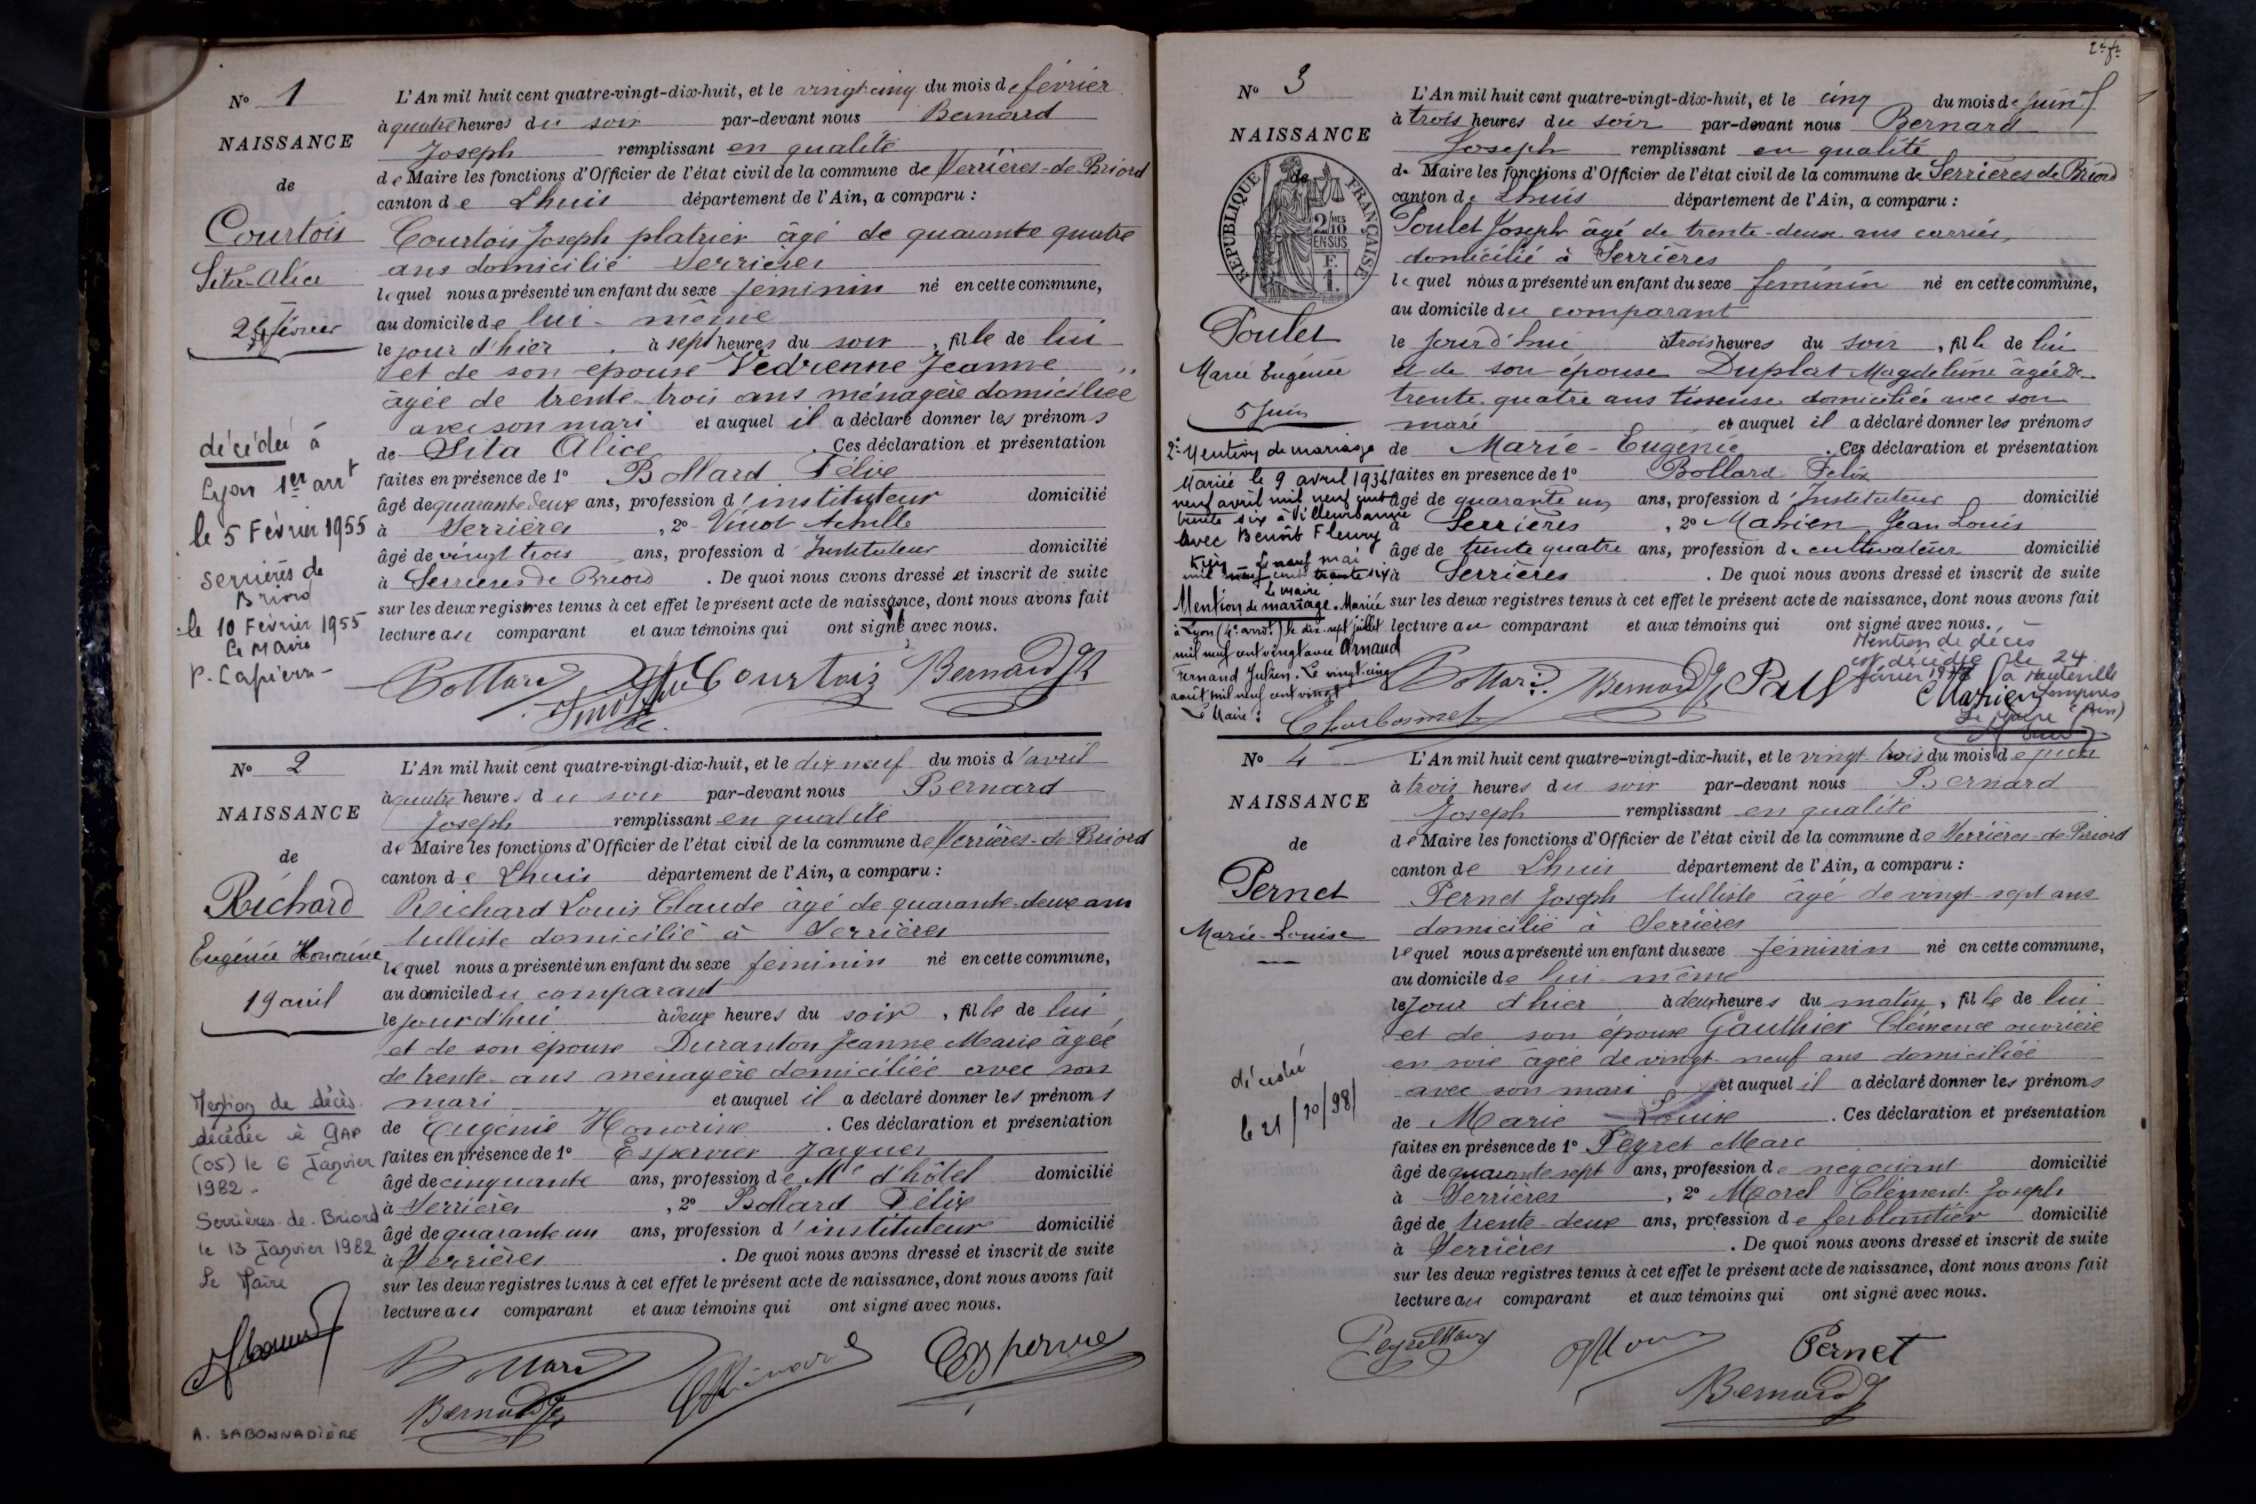 Nº 1
NAISSANCE
de
Courtois
Sita-Alice
24 février
décédée à
Lyon 1er arrt
le 5 Février 1955
Serrières de
Briord
le 10 Février 1955
Le Maire
L'An mil huit cent quatre-vingt-dix-huit, et le vingt-cinq du mois de février
à quatre heures du soir par-devant nous Bernard
Joseph remplissant en qualité
de Maire les fonctions d'Officier de l'état civil de la commune de Serrières-de-Briord
canton de Lhuis département de l'Ain, a comparu :
Courtois Joseph platrier âgé de quarante quatre
ans domicilié Serrières
lequel nous a présenté un enfant du sexe féminin né en cette commune,
au domicile de lui-même
le jour d'hier, à sept heures du soir, fille de lui
et de son épouse Vedrenne Jeanne
agée de trente-trois ans ménagère domiciliée
avec son mari et auquel il a déclaré donner les prénoms
de Sita Alice. Ces déclaration et présentation
faites en présence de 1º Bollard Félix
âgé de quarante deux ans, profession d'instituteur domicilié
à Serrières, 2º Vinot Achille
âgé de vingt trois ans, profession d'Instituteur domicilié
à Serrières de Briord. De quoi nous avons dressé et inscrit de suite
sur les deux registres tenus à cet effet le présent acte de naissance, dont nous avons fait
lecture au comparant et aux témoins qui ont signé avec nous.
Bollard Courtois Bernard J
Nº 2
NAISSANCE
de
Richard
Eugénie Honorine
19 avril
Mention de décès.
décédée à GAP
(05) le 6 Janvier
1982.
Serrières-de-Briord
le 13 Janvier 1982
Le Maire
A. SABONNADIÈRE
L'An mil huit cent quatre-vingt-dix-huit, et le dix neuf du mois d'avril
à quatre heures du soir par-devant nous Bernard
Joseph remplissant en qualité
de Maire les fonctions d'Officier de l'état civil de la commune de Serrières-de-Briord
canton de Lhuis département de l'Ain, a comparu :
Richard Louis Claude âgé de quarante-deux ans
tulliste domicilié à Serrières
lequel nous a présenté un enfant du sexe féminin né en cette commune,
au domicile du comparant
le jourd'hui à deux heures du soir, fille de lui
et de son épouse Duranton Jeanne Marie âgée
de trente ans ménagère domiciliée avec son
mari et auquel il a déclaré donner les prénoms
de Eugénie Honorine. Ces déclaration et présentation
faites en présence de 1º Espervier Jacques
âgé de cinquante ans, profession de Me d'hôtel domicilié
à Serrières, 2º Bollard Félix
âgé de quarante un ans, profession d'instituteur domicilié
à Serrières. De quoi nous avons dressé et inscrit de suite
sur les deux registres tenus à cet effet le présent acte de naissance, dont nous avons fait
lecture au comparant et aux témoins qui ont signé avec nous.
Bollard
Bernard J
Nº 3
NAISSANCE
de
RÉPUBLIQUE FRANÇAISE
Poulet
Marie Eugénie
5 Juin
2e Mention de mariage
Mariée le 9 avril 1936
neuf avril mil neuf cent
trente six à Villeurbanne
avec Benoît Fleury
Le neuf mai
mil neuf cent trente six
Le Maire
Mention de mariage. Mariée
à Lyon (4e arrdt) le dix-sept juillet
mil neuf cent vingt avec Arnaud
Fernand Julien. Le vingt-cinq
août mil neuf cent vingt
Le Maire :
L'An mil huit cent quatre-vingt-dix-huit, et le cinq du mois de juin
à trois heures du soir par-devant nous Bernard
Joseph remplissant en qualité
de Maire les fonctions d'Officier de l'état civil de la commune de Serrières de Briord
canton de Lhuis département de l'Ain, a comparu :
Poulet Joseph âgé de trente-deux ans carrier,
domicilié à Serrières
lequel nous a présenté un enfant du sexe féminin né en cette commune,
au domicile du comparant
le jourd'hui à trois heures du soir, fille de lui
et de son épouse Duplat Magdeleine âgée de
trente quatre ans tisseuse domiciliée avec son
mari et auquel il a déclaré donner les prénoms
de Marie-Eugénie. Ces déclaration et présentation
faites en présence de 1º Bollard Felix
âgé de quarante un ans, profession d'Instituteur domicilié
à Serrières, 2º Marien Jean Louis
âgé de trente quatre ans, profession de cultivateur domicilié
à Serrières. De quoi nous avons dressé et inscrit de suite
sur les deux registres tenus à cet effet le présent acte de naissance, dont nous avons fait
lecture au comparant et aux témoins qui ont signé avec nous.
Mention de décès
est décédée le 24
à Hauteville
Lompnes
(Ain)
Le Maire
Bollard Bernard J Marien
Charbonnet
Nº 4
NAISSANCE
de
Pernet
Marie-Louise
décédée
le 21/10/98
L'An mil huit cent quatre-vingt-dix-huit, et le vingt trois du mois de juin
à trois heures du soir par-devant nous Bernard
Joseph remplissant en qualité
de Maire les fonctions d'Officier de l'état civil de la commune de Serrières-de-Briord
canton de Lhuis département de l'Ain, a comparu :
Pernet Joseph tulliste âgé de vingt-sept ans
domicilié à Serrières
lequel nous a présenté un enfant du sexe féminin né en cette commune,
au domicile de lui-même
le jour d'hier à deux heures du matin, fille de lui
et de son épouse Gauthier Clémence ouvrière
en soie âgée de vingt-neuf ans domiciliée
avec son mari et auquel il a déclaré donner les prénoms
de Marie Louise. Ces déclaration et présentation
faites en présence de 1º Peyret Marc
âgé de quarante sept ans, profession de négociant domicilié
à Serrières, 2º Morel Clément Joseph
âgé de trente-deux ans, profession de ferblantier domicilié
à Serrières. De quoi nous avons dressé et inscrit de suite
sur les deux registres tenus à cet effet le présent acte de naissance, dont nous avons fait
lecture au comparant et aux témoins qui ont signé avec nous.
Peyret Marc Pernet
Bernard J